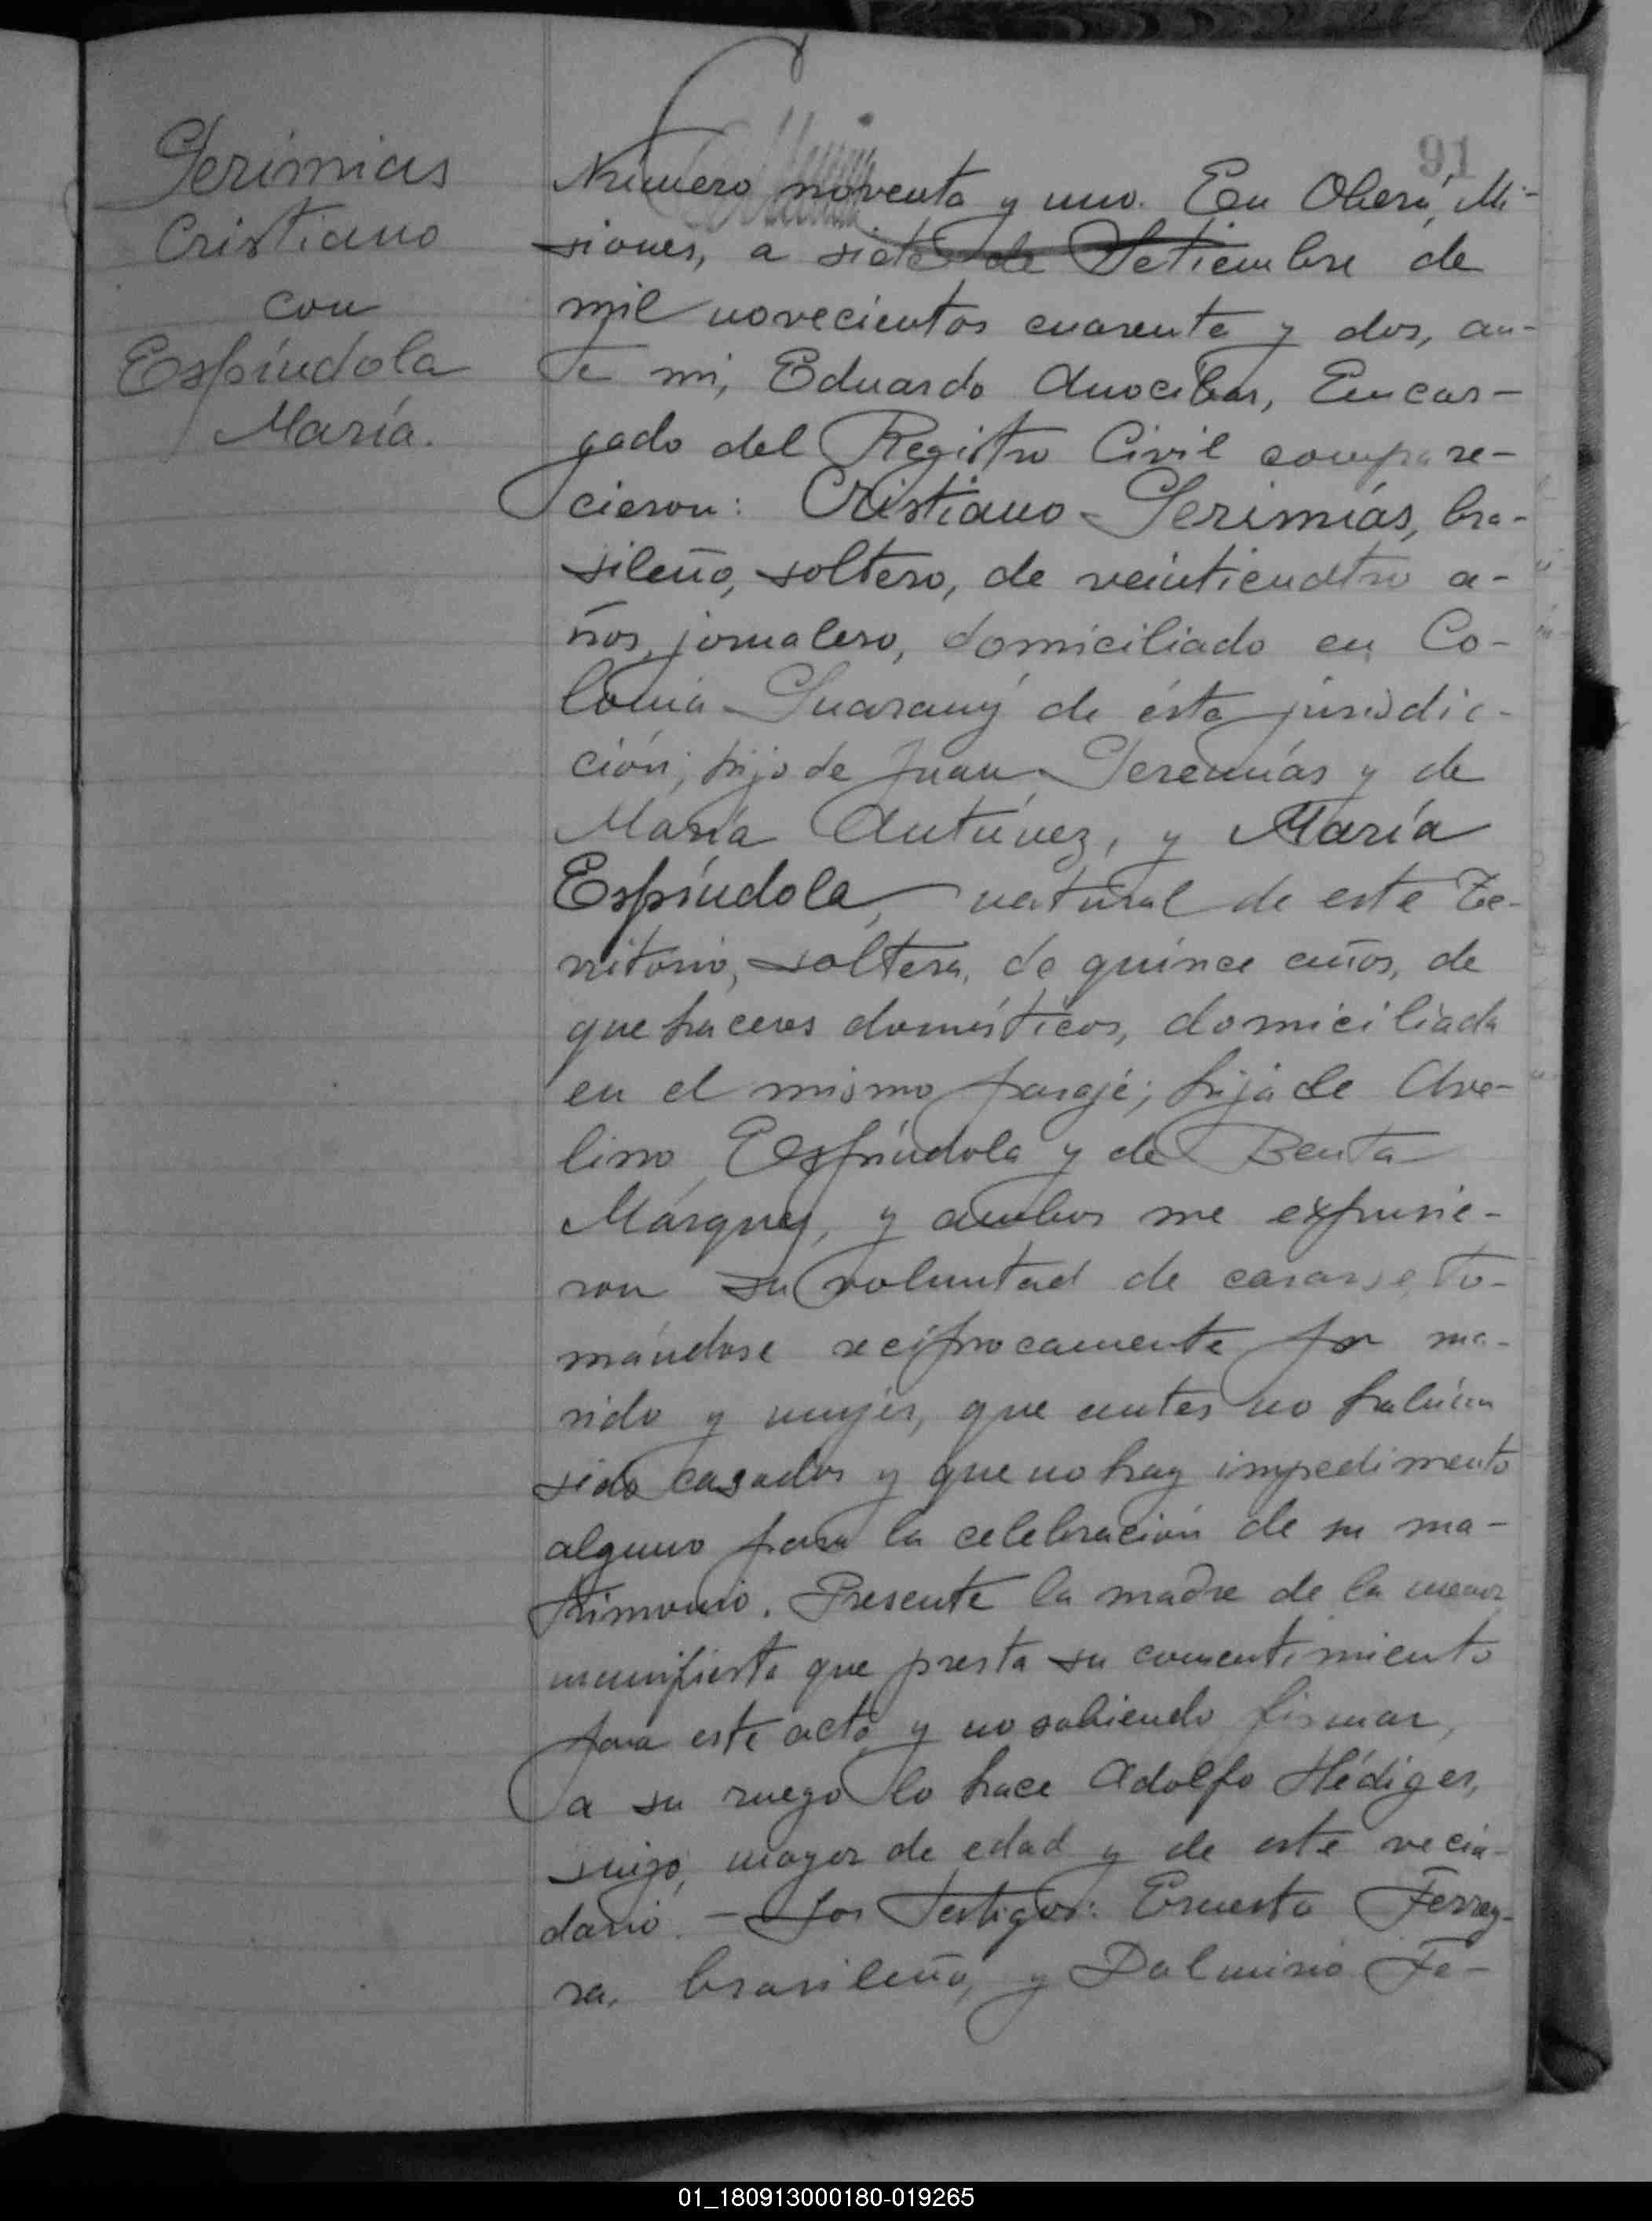 91
Gerimias
Cristiano
con
Espíndola
María.
Número noventa y uno. En Oberá, Mi-
siones, a siete de Setiembre de
mil novecientos cuarenta y dos, an-
te mi, Eduardo Anocibar, Encar-
gado del Registro Civil compare-
cieron: Cristiano Gerimías, bra-
sileño, soltero, de veinticuatro a-
ños, jornalero, domiciliado en Co-
lonia Guarany de ésta jurisdic-
ción; hijo de Juan Geremías y de
María Antúnez, y María
Espíndola, natural de este Te-
rritorio, soltera, de quince años, de
quehaceres domésticos, domiciliada
en el mismo paraje; hija de Ave-
lino Espíndola y de Benta
Márquez, y ambos me expusie-
ron su voluntad de casarse, to-
mándose recíprocamente por ma-
rido y mujer, que antes no habían
sido casados y que no hay impedimento
alguno para la celebración de su ma-
trimonio. Presente la madre de la menor
manifiesta que presta su consentimiento
para este acto y no sabiendo firmar,
a su ruego lo hace Adolfo Hédiger,
suizo, mayor de edad y de este vecin-
dario. — Los Testigos: Ernesto Ferrey-
ra, brasileño, y Dalmirio Fe-
01_180913000180-019265